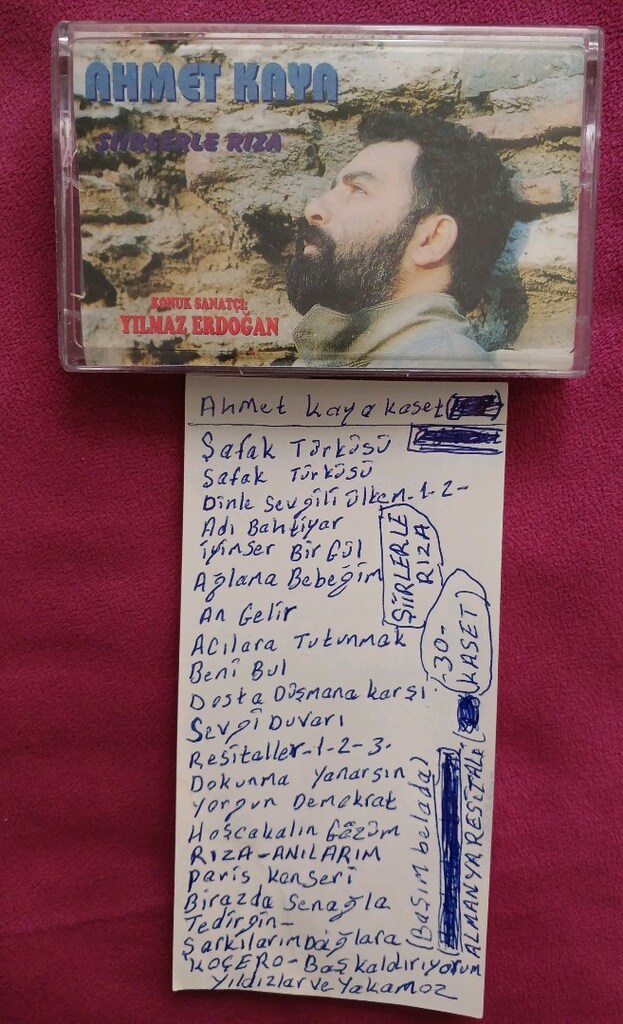 AHMET KAYA
ŞİİRLERLE RIZA
KONUK SANATÇI:
YILMAZ ERDOĞAN
Ahmet Kaya kaset
Şafak Türküsü
Safak Türküsü
Dinle Sevgili Ülkem-1-2-
Adı Bahtiyar
iyimser Bir Gül
Ağlama Bebeğim
An Gelir
Acılara Tutunmak
Beni Bul
Dosta Düşmana karşı
Sevgi Duvarı
Resitaller-1-2-3-
Dokunma Yanarsın
Yorgun Demokrat
Hoşcakalın Gözüm
RIZA-ANILARIM
paris Konseri
Birazda Senağla
Tedirgin-
Şarkılarım Dağlara
KOÇERO-Baş kaldırıyorum
Yıldızlar ve Yakamoz
ŞİİRLERLE
RIZA
-30-
KASET
(Başım belada)
ALMANYA RESİTALİ